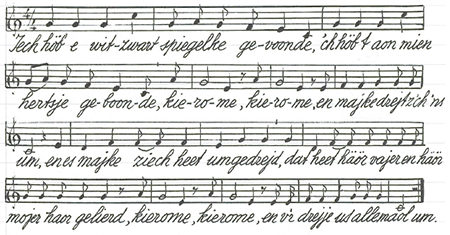 Iech höb e wit-zwart spiegelke ge-voonde, 'ch höb 't aon mien
hertsje ge-boon-de, kie-ro-me, kie-ro-me, en majke drejt z'ich 'ns
um, en es majke ziech heet umgedrejd, dat heet häör vajer en häör
mojer haor gelierd, kierome, kierome, en v'r drejje us allemaol um.